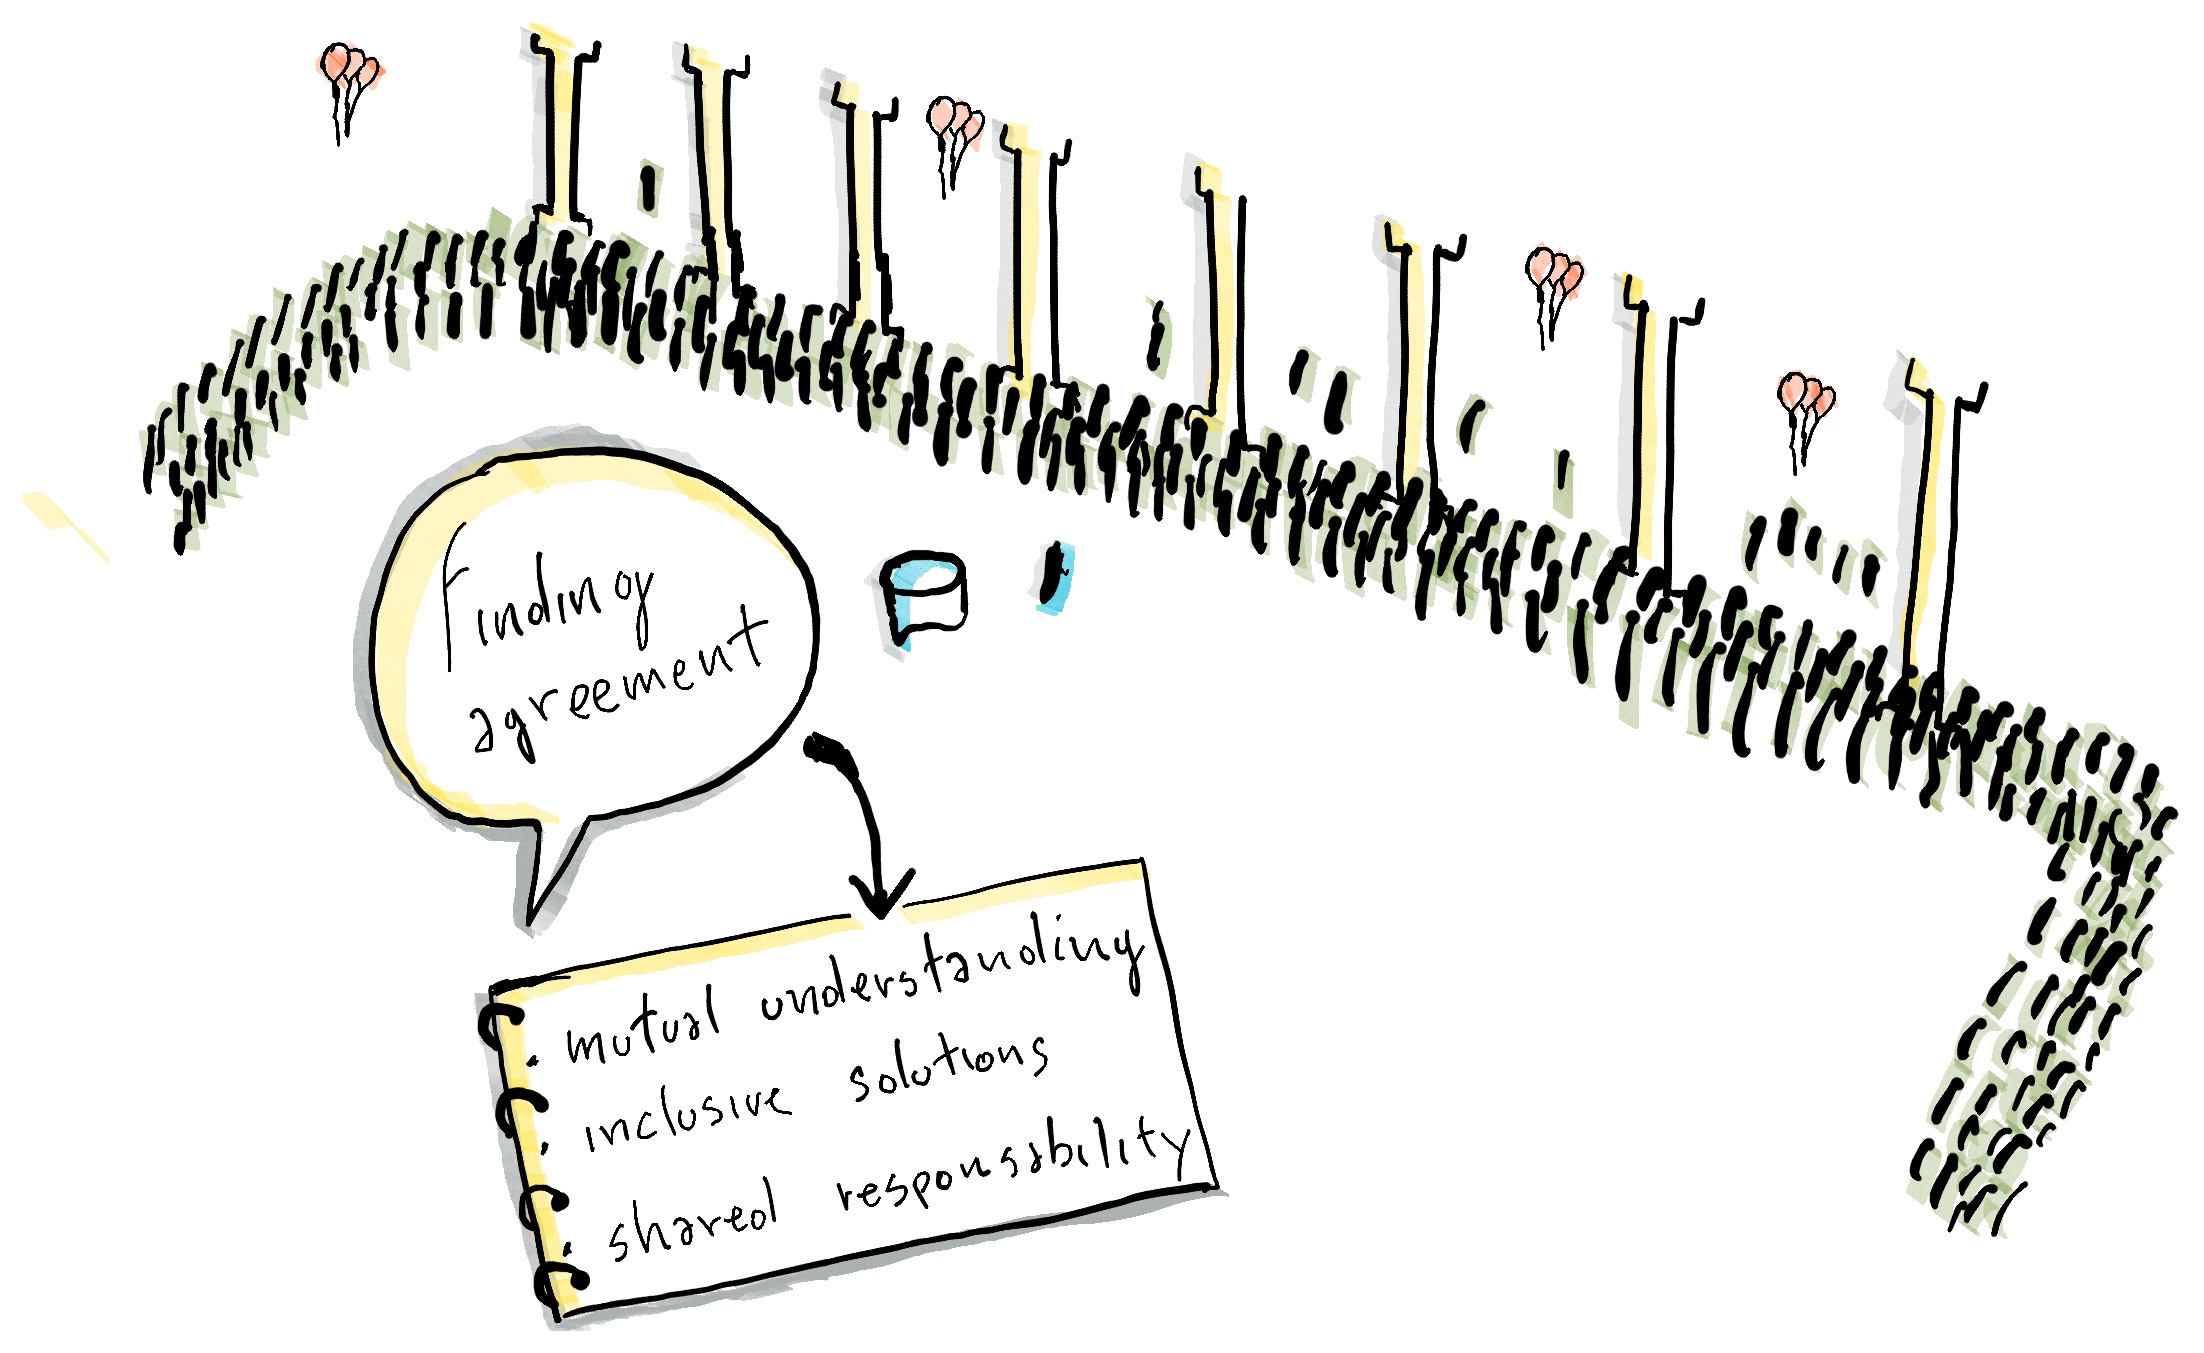 Finding
agreement
. mutual understanding
. inclusive solutions
. shared responsability